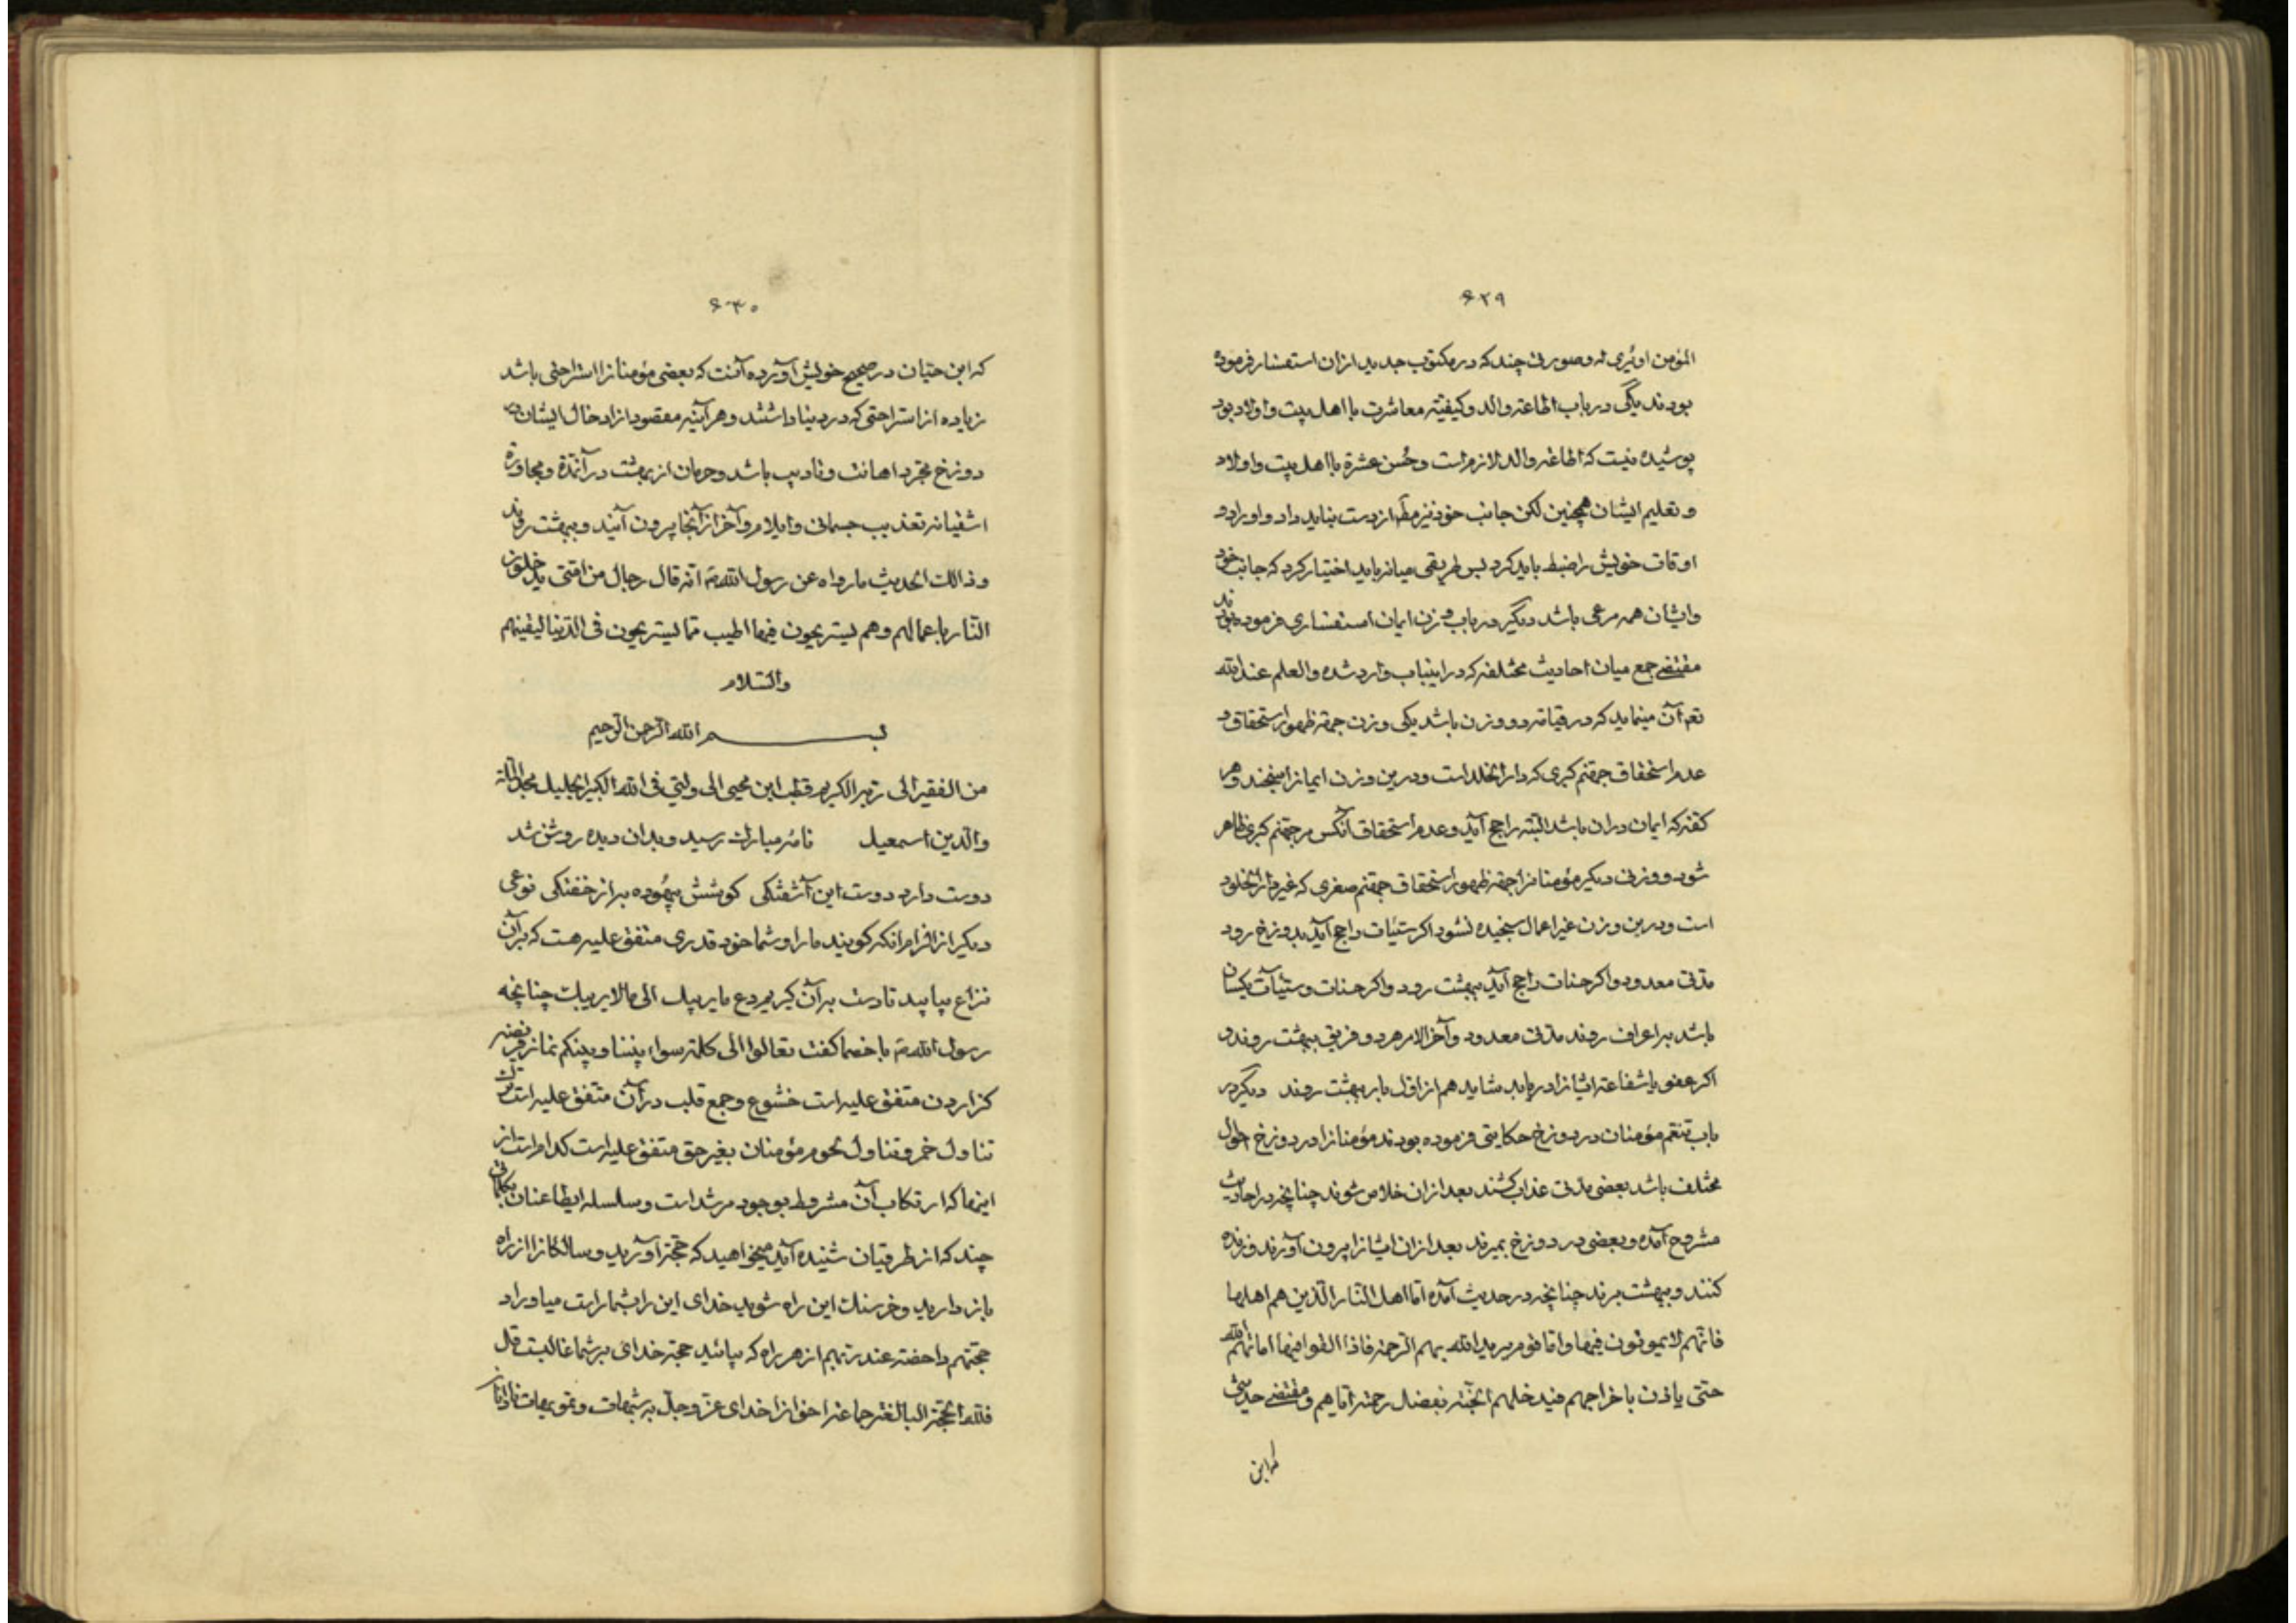 ۶۲۹
المؤمن او یری له وصورتی چند که در مکتوب جدید ازان استفسار فرموده
بودند یکی در باب اطاعة والد و کیفیة معاشرت با اهل بیت و اولاد بود
پوشیده نیست که اطاعة والد لازم است و حُسن عشرة با اهل بیت و اولاد
و تعلیم ایشان همچنین لکن جانب خود نیز از دست نباید داد و اوراد و
اوقات خویش را ضبط باید کرد پس طریقی میانه باید اختیار کرد که جانب خود
و ایشان همه مرعی باشد دیگر در باب وزن ایمان استفساری فرموده بودند
مقتضی جمع میان احادیث مختلفه که در اینباب وارد شده والعلم عند الله
آن مینماید که در قیامة دو وزن باشد یکی وزن جهة ظهور استحقاق و
عدم استحقاق جهنم کبری که دار الخلد است و درین وزن ایمانرا سنجند و هر
کفه که ایمان دران باشد البته راجح آید و عدم استحقاق آنکس مر جهنم کبری ظاهر
شود و وزنی دیگر مؤمنانرا جهة ظهور استحقاق جهنم صغری که غیر دار الخلود
است و درین وزن غیر اعمال سنجیده نشود اگر سیّئات راجح آید بدوزخ رود
مدتی معدود و اگر حسنات راجح آید ببهشت رود و اگر حسنات و سیّئات یکسان
باشد بر اعراف روند مدتی معدود و آخر الامر هر دو فریق ببهشت روند و
اگر عفو یا شفاعة ایشانرا دریابد شاید هم از اول بار ببهشت روند دیگر در
باب تنعم مؤمنان در دوزخ حکایتی فرموده بودند مؤمنانرا در دوزخ احوال
مختلف باشد بعضی مدتی عذاب کشند بعد ازان خلاص شوند چنانچه در احادیث
مشروح آمده و بعضی در دوزخ بمیرند بعد ازان ایشانرا بیرون آورند و زنده
کنند و ببهشت برند چنانچه در حدیث آمده اما اهل النار الذین هم اهلها
فانهم لا یموتون فیها و اما قوم یرید الله بهم الرحمة فاذا القوا فیها اماتهم الله
حتی یاذن باخراجهم فیدخلهم الجنة بفضل رحمته ایاهم و مقتضی حدیثی
که ابن
۶۳۰
که ابن حبّان در صحیح خویش آورده آنست که بعضی مؤمنانرا استراحتی باشد
زیاده از استراحتی که در دنیا داشتند و هر آینه مقصود از ادخال ایشان در
دوزخ مجرد اهانت و تادیب باشد و حرمان از بهشت در آنمدة و مجاورة
اشقیا نه تعذیب جسمانی و ایلام و آخر از آنجا بیرون آیند و ببهشت روند
و ذالک الحدیث ما رواه عن رسول الله انه قال رجال من امتی یدخلون
النار باعمالهم و هم یستریحون فیها اطیب مما یستریحون فی الدنیا لیقینهم
والسّلام
بسم الله الرحمن الرحیم
من الفقیر الی ربه الکریم قطب ابن محیی الی ولیّی فی الله الکبیر الجلیل مجد الملة
والدین اسمعیل نامه مبارک رسید و بدان دیده روشن شد
دوست دارد دوست این آشفتگی کوشش بیهُوده به از خفتگی نوعی
دیگر از الزام آنکه گویند ما را و شما خود قدری متفق علیه هست که بر آن
نزاع بیایید تا دست بر آن گیریم دع ما یریبک الی ما لا یریبک چنانچه
رسول الله با خصما گفت تعالوا الی کلمة سواء بیننا و بینکم نماز فریضه
گزاردن متفق علیه است خشوع و جمع قلب در آن متفق علیه است ترک
تناول خمر و تناول لحوم مؤمنان بغیر حق متفق علیه است کدام است از
اینها که ارتکاب آن مشروط بوجود مرشد است و سلسله
چند که از طرقیان شنیده آید میخواهید که حجة آورید و سالکانرا از راه
باز دارید و خرسنک این راه شوید خدای این را بشما راست میاوراد
حجتهم داحضة عند ربهم از هر راه که بیائید حجة خدای بر شما غالبست قل
فلله الحجة البالغة جماعة اخوانرا خدای عز و جل بر شبهات و تمویهات